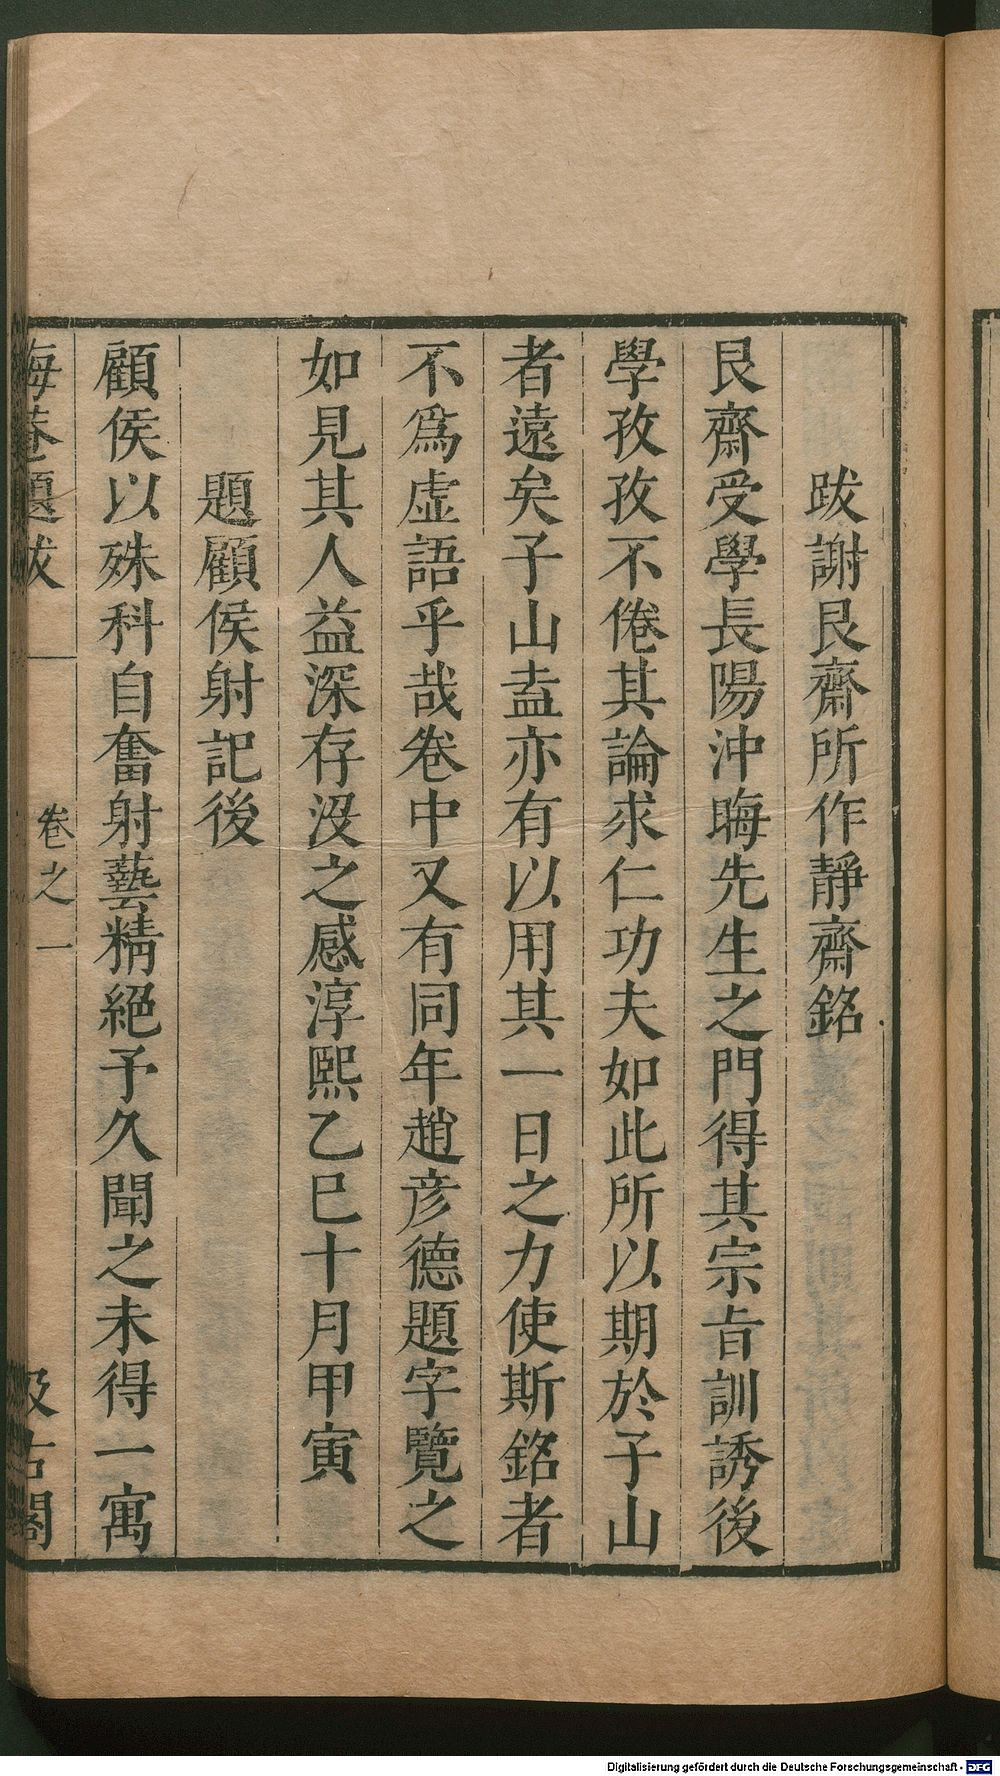 跋謝艮齋所作靜齋銘
艮齋受學長陽沖晦先生之門得其宗旨訓誘後
學孜孜不倦其論求仁功夫如此所以期於子山
者遠矣子山盍亦有以用其一日之力使斯銘者
不爲虛語乎哉卷中又有同年趙彥德題字覽之
如見其人益深存沒之感淳熙乙巳十月甲寅
題顧侯射記後
顧侯以殊科自奮射藝精絕予久聞之未得一寓
晦菴題跋
卷之一
汲古閣
Digitalisierung gefördert durch die Deutsche Forschungsgemeinschaft - DFG